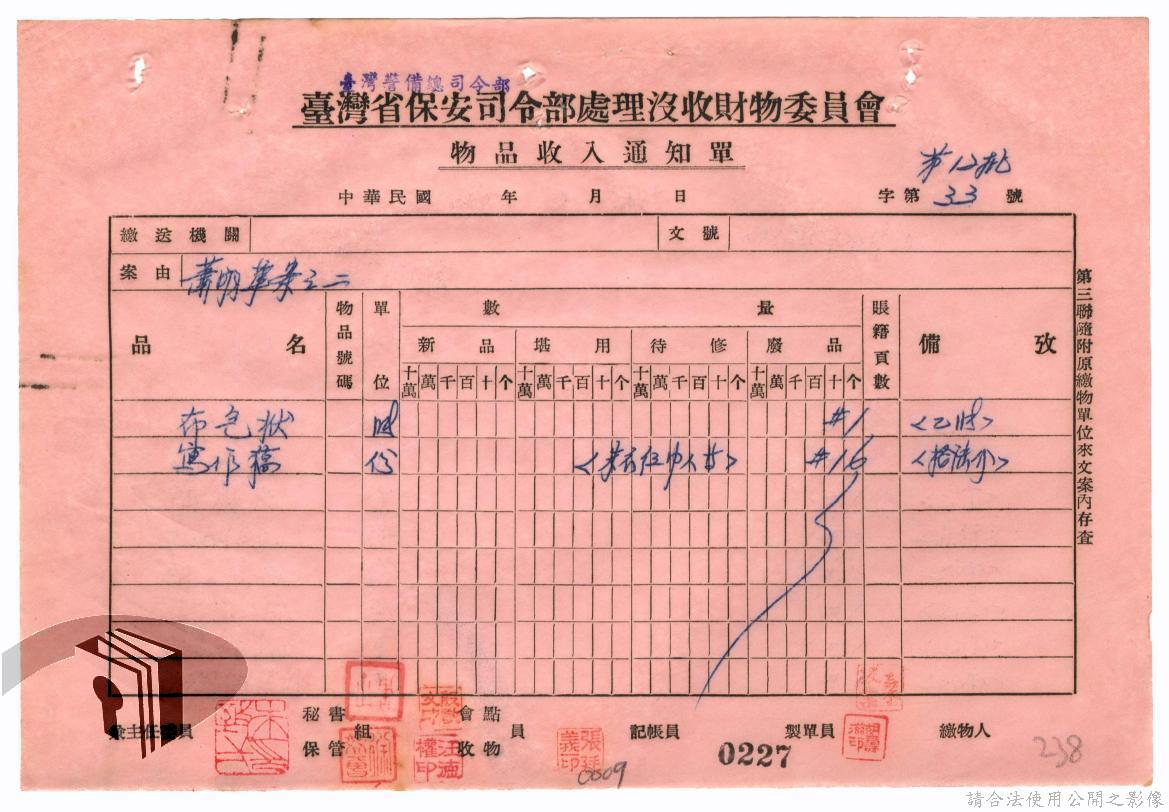 臺灣警備總司令部
臺灣省保安司令部處理沒收財物委員會
物品收入通知單
第12批
中華民國 年 月 日 字第 33 號
繳送機關 文號
案由 蕭明華案之二
品名 物品號碼 單位 數量 賬籍頁數 備攷
新品 堪用 待修 廢品
十萬 萬 千 百 十 个 十萬 萬 千 百 十 个 十萬 萬 千 百 十 个 十萬 萬 千 百 十 个
布包狀 #1
寫作稿 份 #16
第三聯隨附原繳物單位來文案內存查
兼主任委員 秘書 保管 組 會點 收物 員 記帳員 製單員 繳物人
張廷義印
0227
0009
238
請合法使用公開之影像